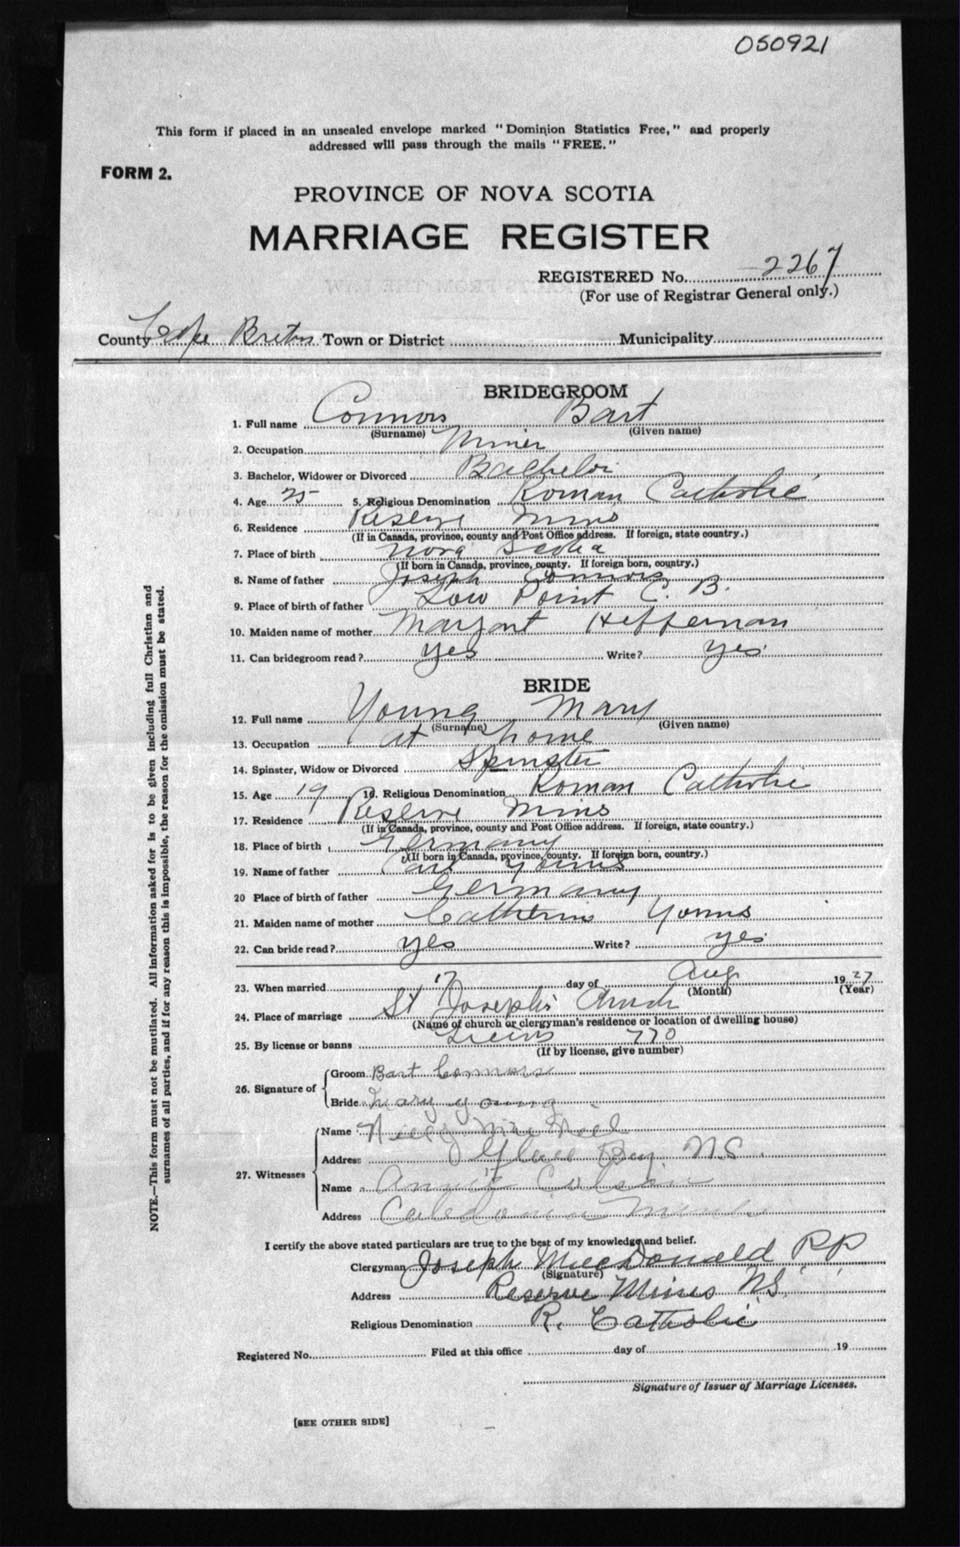 050921
This form if placed in an unsealed envelope marked "Dominion Statistics Free," and properly
addressed will pass through the mails "FREE."
FORM 2.
PROVINCE OF NOVA SCOTIA
MARRIAGE REGISTER
REGISTERED No. 2267
(For use of Registrar General only.)
County Cape Breton Town or District Municipality
BRIDEGROOM
1. Full name Connors Bart
(Surname) (Given name)
2. Occupation Miner
3. Bachelor, Widower or Divorced Bachelor
4. Age 25 5. Religious Denomination Roman Catholic
6. Residence Reserve Mines
(If in Canada, province, county and Post Office address. If foreign, state country.)
7. Place of birth Nova Scotia
(If born in Canada, province, county. If foreign born, country.)
8. Name of father Joseph Connors
9. Place of birth of father Low Point C. B.
10. Maiden name of mother Margaret Heffernan
11. Can bridegroom read? yes Write? yes
BRIDE
12. Full name Young Mary
(Surname) (Given name)
13. Occupation at home
14. Spinster, Widow or Divorced Spinster
15. Age 19 16. Religious Denomination Roman Catholic
17. Residence Reserve Mines
(If in Canada, province, county and Post Office address. If foreign, state country.)
18. Place of birth Germany
(If born in Canada, province, county. If foreign born, country.)
19. Name of father
20 Place of birth of father Germany
21. Maiden name of mother Catherine
22. Can bride read? yes Write? yes
23. When married 17 day of Aug 1927
(Month) (Year)
24. Place of marriage St Joseph's
(Name of church or clergyman's residence or location of dwelling house)
25. By license or banns 770
(If by license, give number)
26. Signature of Groom Bart Connors
Bride Mary Young
27. Witnesses Name MacNeil
Address Glace Bay N.S.
Name Annie
Address Caledonia Mines
I certify the above stated particulars are true to the best of my knowledge and belief.
Clergyman Joseph MacDonald P.P.
(Signature)
Address Reserve Mines N.S.
Religious Denomination R. Catholic
Registered No. Filed at this office day of 19
Signature of Issuer of Marriage Licenses.
[SEE OTHER SIDE]
NOTE.—This form must not be mutilated. All information asked for is to be given including full Christian and
surnames of all parties, and if for any reason this is impossible, the reason for the omission must be stated.